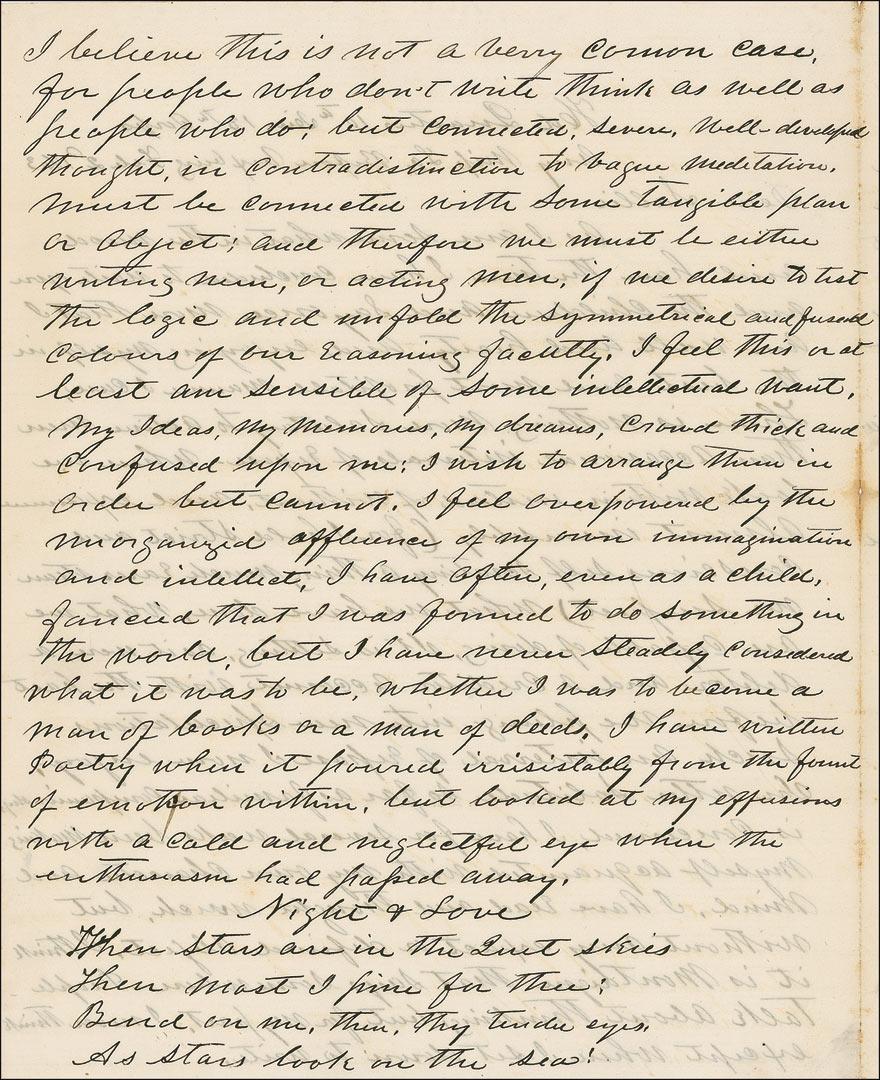 I believe this is not a verry comon case,
for people who don't write think as well as
people who do; but connected, severe, well-developed
thought, in contradistinction to vague meditation,
must be connected with some tangible plan
or object; and therefore we must be either
writing men, or acting men, if we desire to test
the logic and unfold the symmetrical and fused
colours of our reasoning facultty. I feel this or at
least am sensible of some intellectual want,
My Ideas, my memories, my dreams, crowd thick and
confused upon me; I wish to arrange them in
order but cannot. I feel overpowered by the
unorganized affluence of my own immagination
and intellect, I have often, even as a child,
fancied that I was formed to do something in
the world, but I have never steadily considered
what it was to be, whether I was to become a
man of books or a man of deeds, I have written
Poetry when it poured irrisistably from the fount
of emotion within, but looked at my effusions
with a cold and neglectful eye when the
enthusiasm had passed away.
Night & Love
When stars are in the Quet skies
Then most I pine for thee;
Bend on me, then, thy tender eyes,
As stars look on the sea!